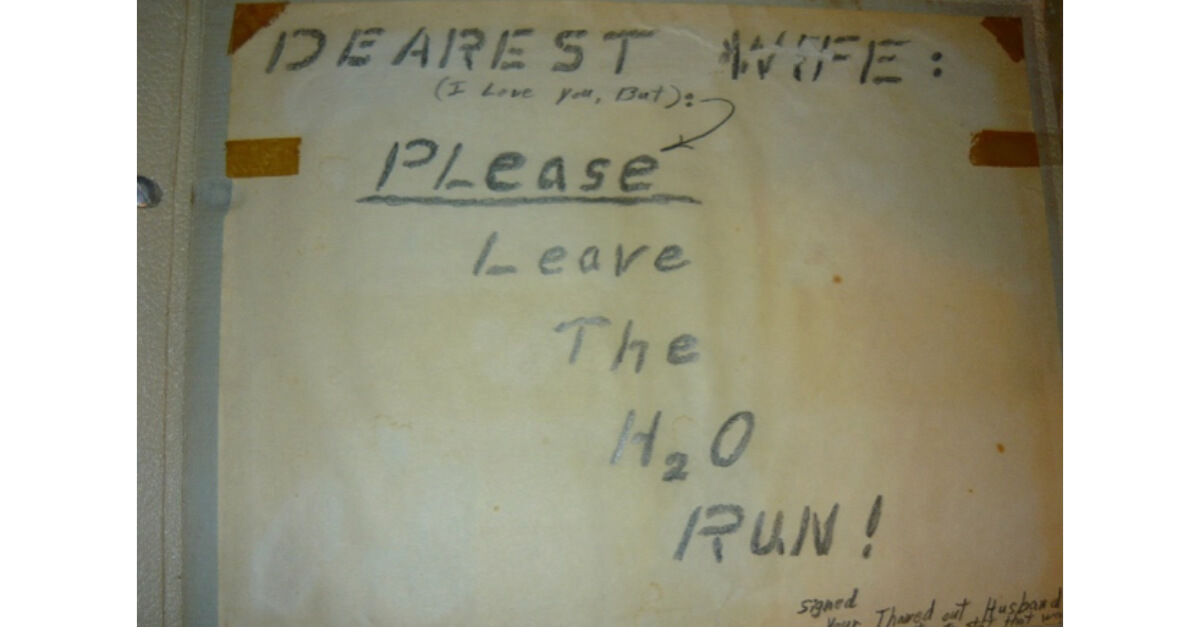 DEAREST WIFE:
(I Love you, But):
PLease
Leave
The
H₂O
RUN!
signed
Your Thawed out Husband
that